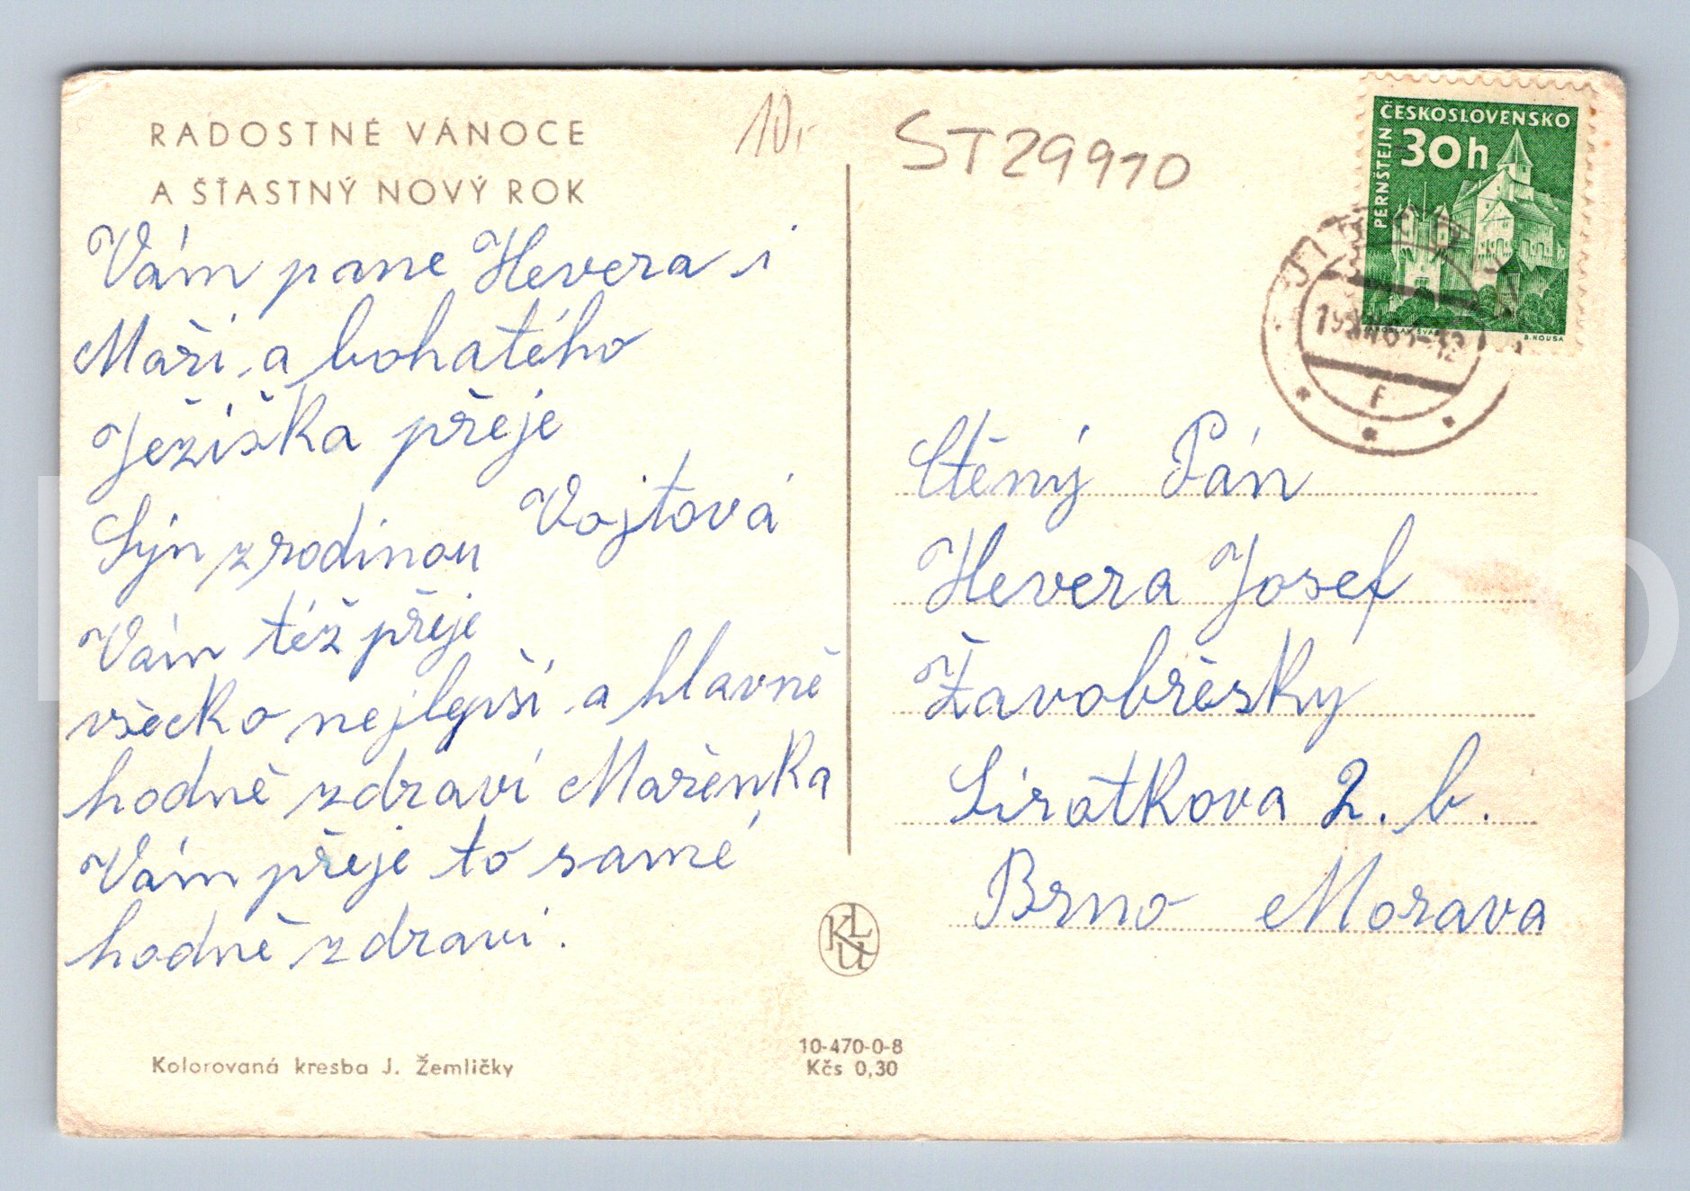 RADOSTNÉ VÁNOCE
A ŠŤASTNÝ NOVÝ ROK
Vám pane Hevera i
Maři a bohatého
Ježiška přeje
Vojtová
Syn z rodinou
Vám též přeje
všecko nejlepši a hlavně
hodně zdraví Mařenka
Vám přeje to samé
hodně zdraví.
Kolorovaná kresba J. Žemličky
10,-
ST29910
KLU
10-470-0-8
Kčs 0,30
ČESKOSLOVENSKO
30h
PERNŠTEJN
B. HOUSA
F
Ctěný Pán
Hevera Josef
Žavobřěsky
Sirotkova 2. b.
Brno Morava